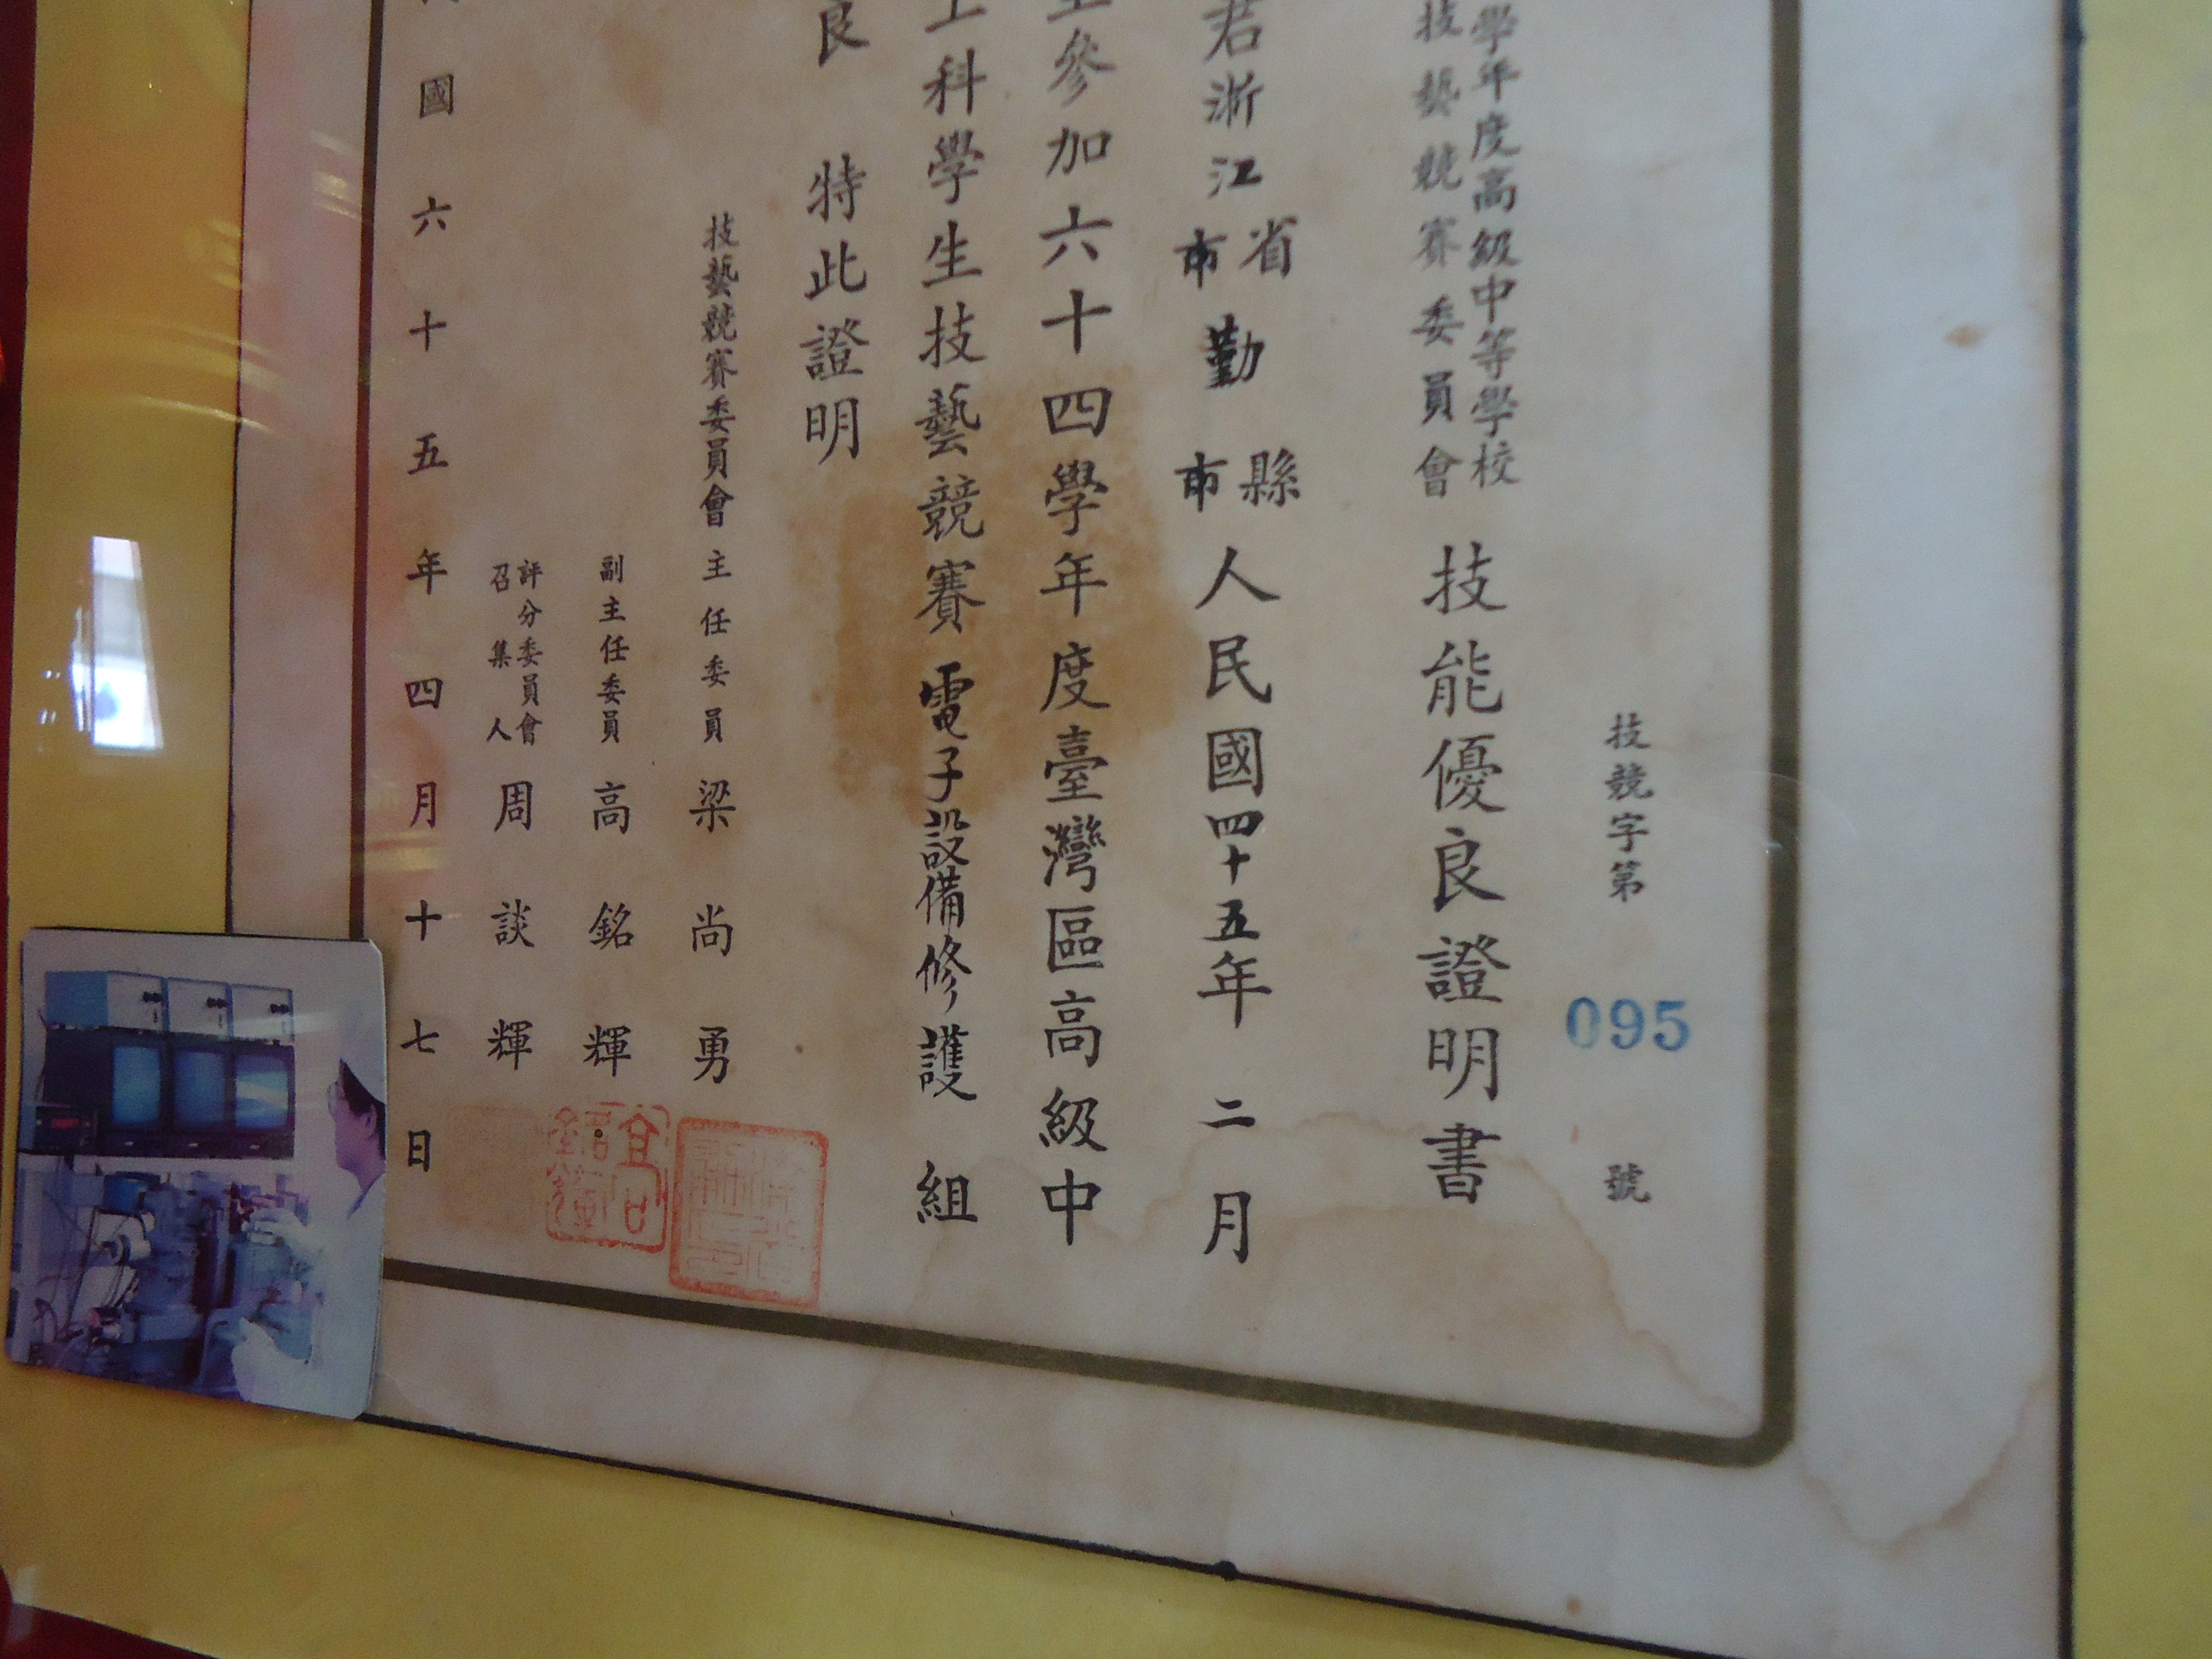 技競字第 095 號
學年度高級中等學校
技藝競賽委員會
技能優良證明書
君浙江省市勤縣市人民國四十五年二月
參加六十四學年度臺灣區高級中
工科學生技藝競賽電子設備修護組
良 特此證明
技藝競賽委員會主任委員梁尚勇
副主任委員高銘輝
評分委員會召集人周談輝
國六十五年四月十七日